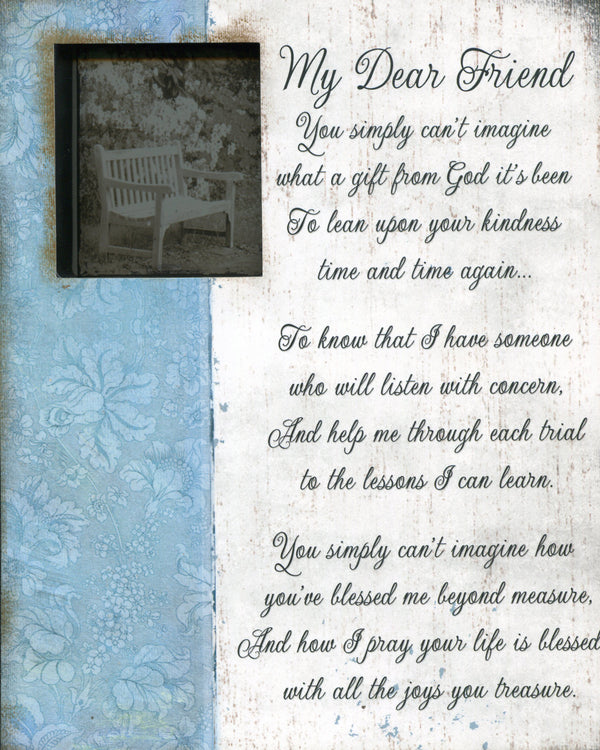 My Dear Friend
You simply can't imagine
what a gift from God it's been
To lean upon your kindness
time and time again...
To know that I have someone
who will listen with concern,
And help me through each trial
to the lessons I can learn.
You simply can't imagine how
you've blessed me beyond measure,
And how I pray your life is blessed
with all the joys you treasure.